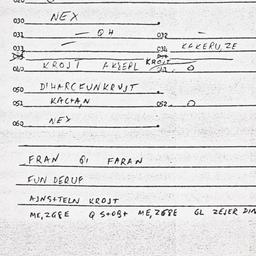 030 NEX
031 — QH 032 —
033 — 034 KAKERU, ZE
040 KROJT AKJERL KROJT O
050 DIHARCKUNKRUJT
051 KACHAN 052 O
060 NEX
FRAN QI FARAN
FUN DERUF
AJNSHTELN KROJT
ME,ZGBE Q S+OB+ ME,ZGBE GL ZEJER DIN